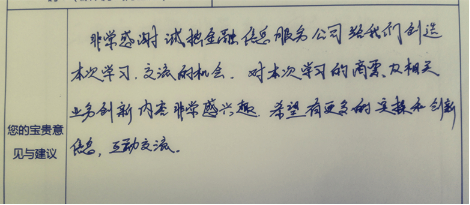 非常感谢诚报金融信息服务公司给我们创造
本次学习、交流的机会。对本次学习的商票及相关
业务创新内容非常感兴趣。希望有更多的实操和创新
信息，互动交流。
您的宝贵意
见与建议